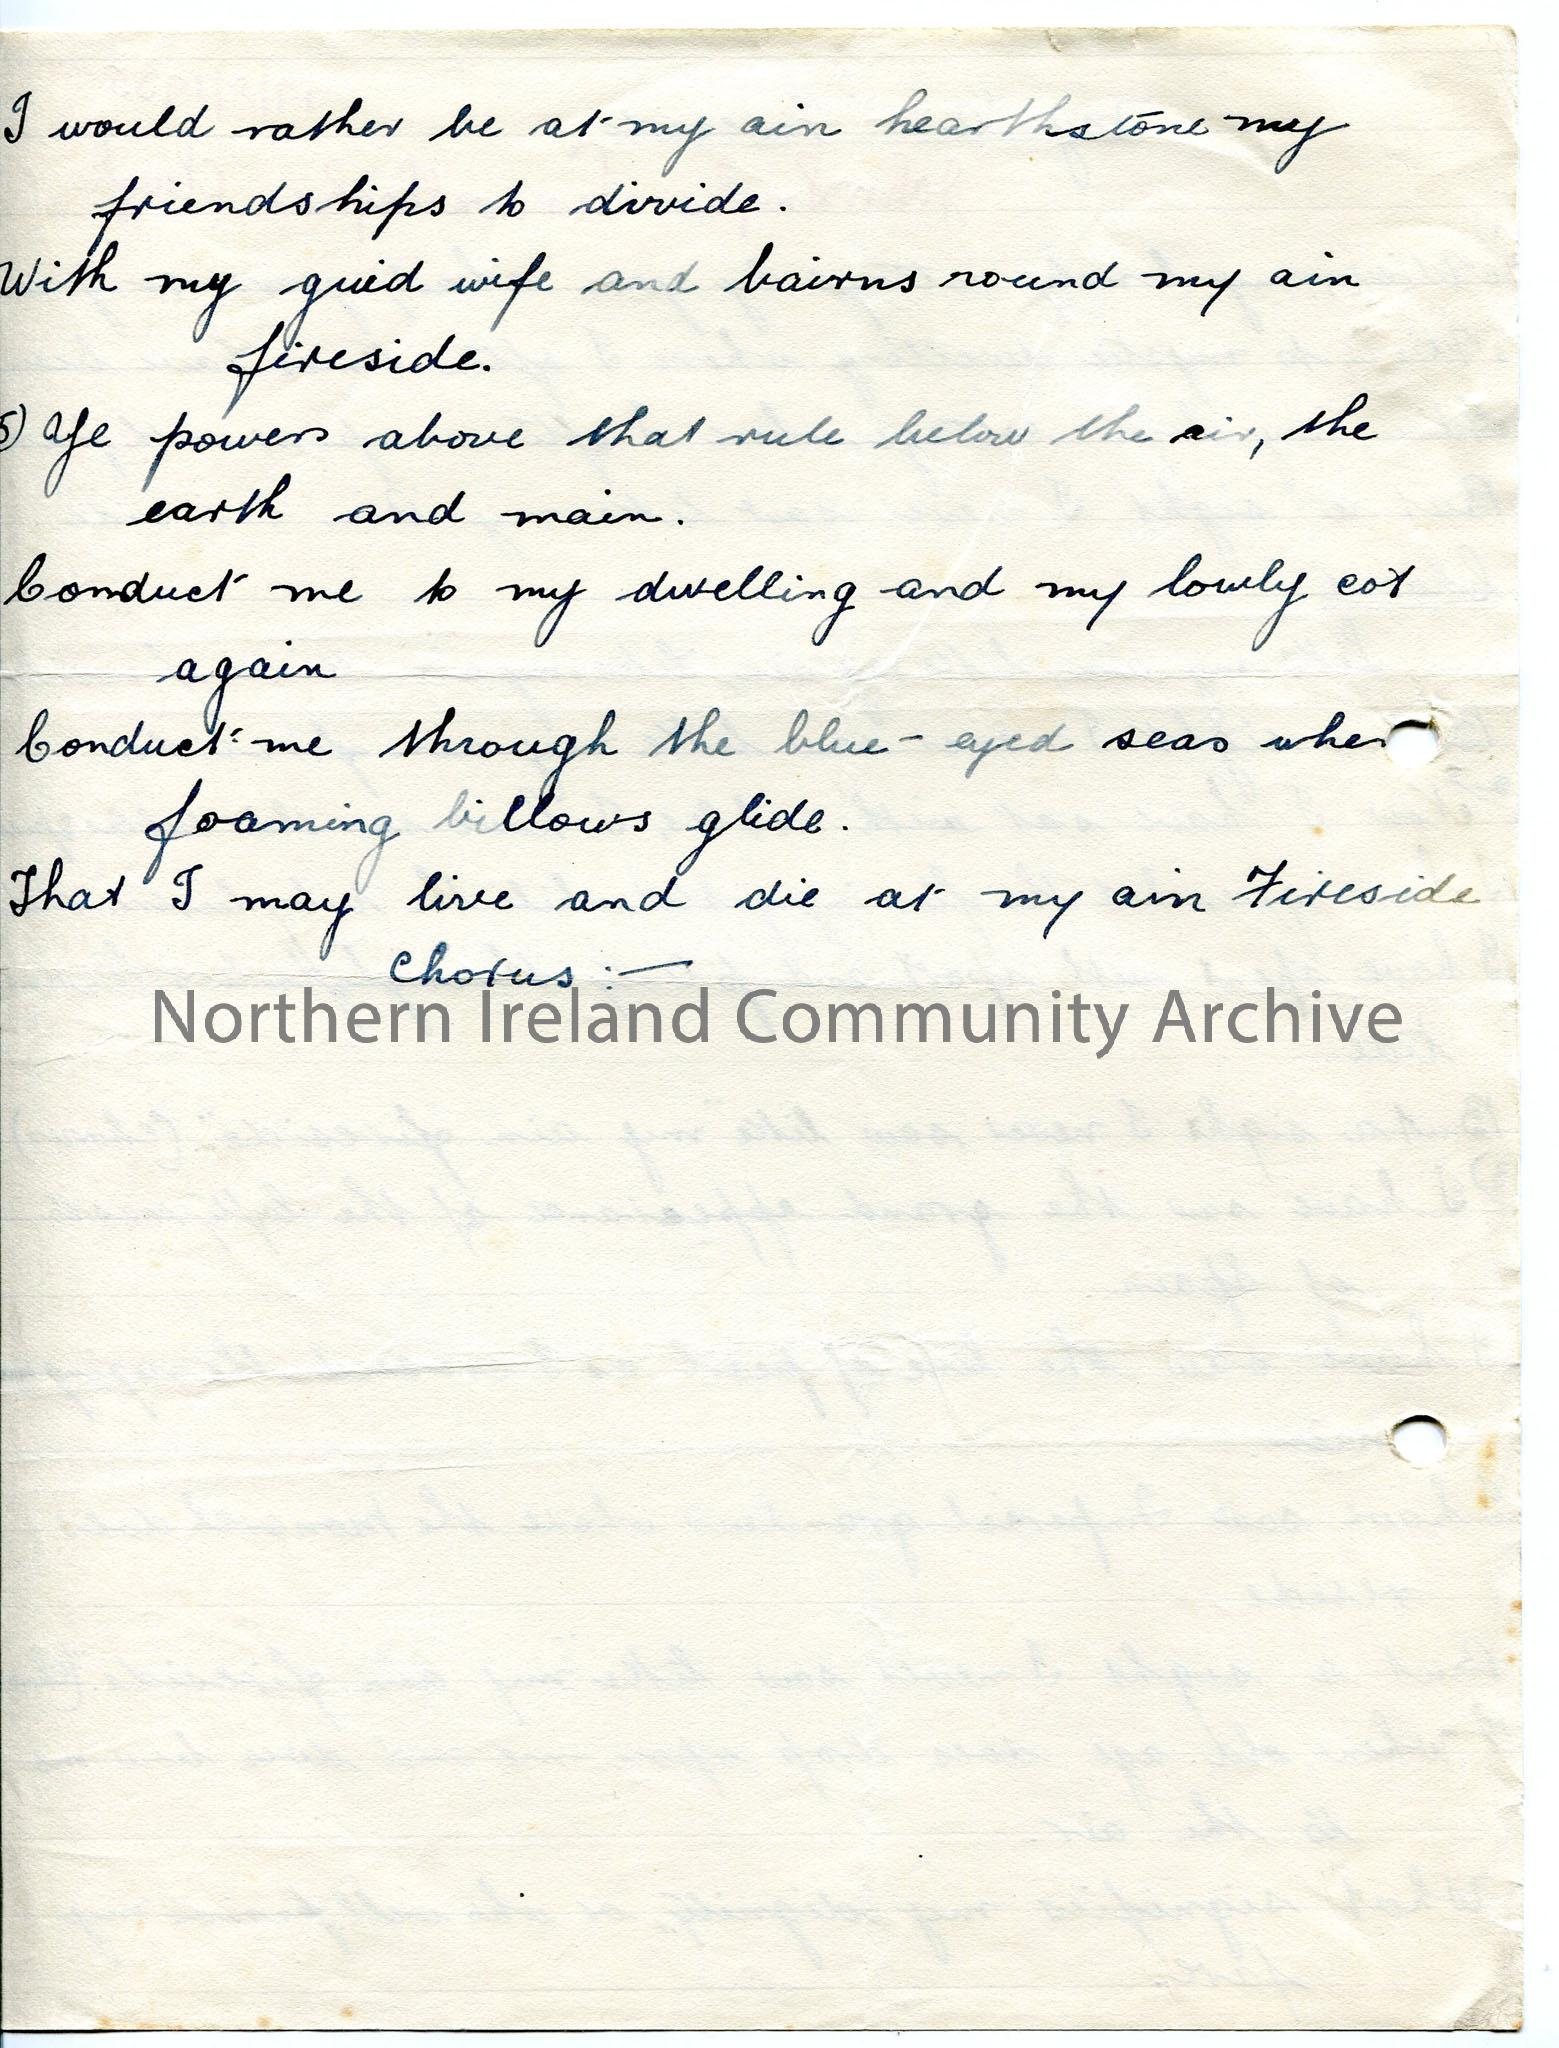 I would rather be at my ain hearthstone my
friendships to divide.
With my guid wife and bairns round my ain
fireside.
5) Ye powers above that rule below the air, the
earth and main.
Conduct me to my dwelling and my lowly cot
again
Conduct me through the blue-eyed seas wher
foaming billows glide.
That I may live and die at my ain Fireside
Chorus :—
Northern Ireland Community Archive